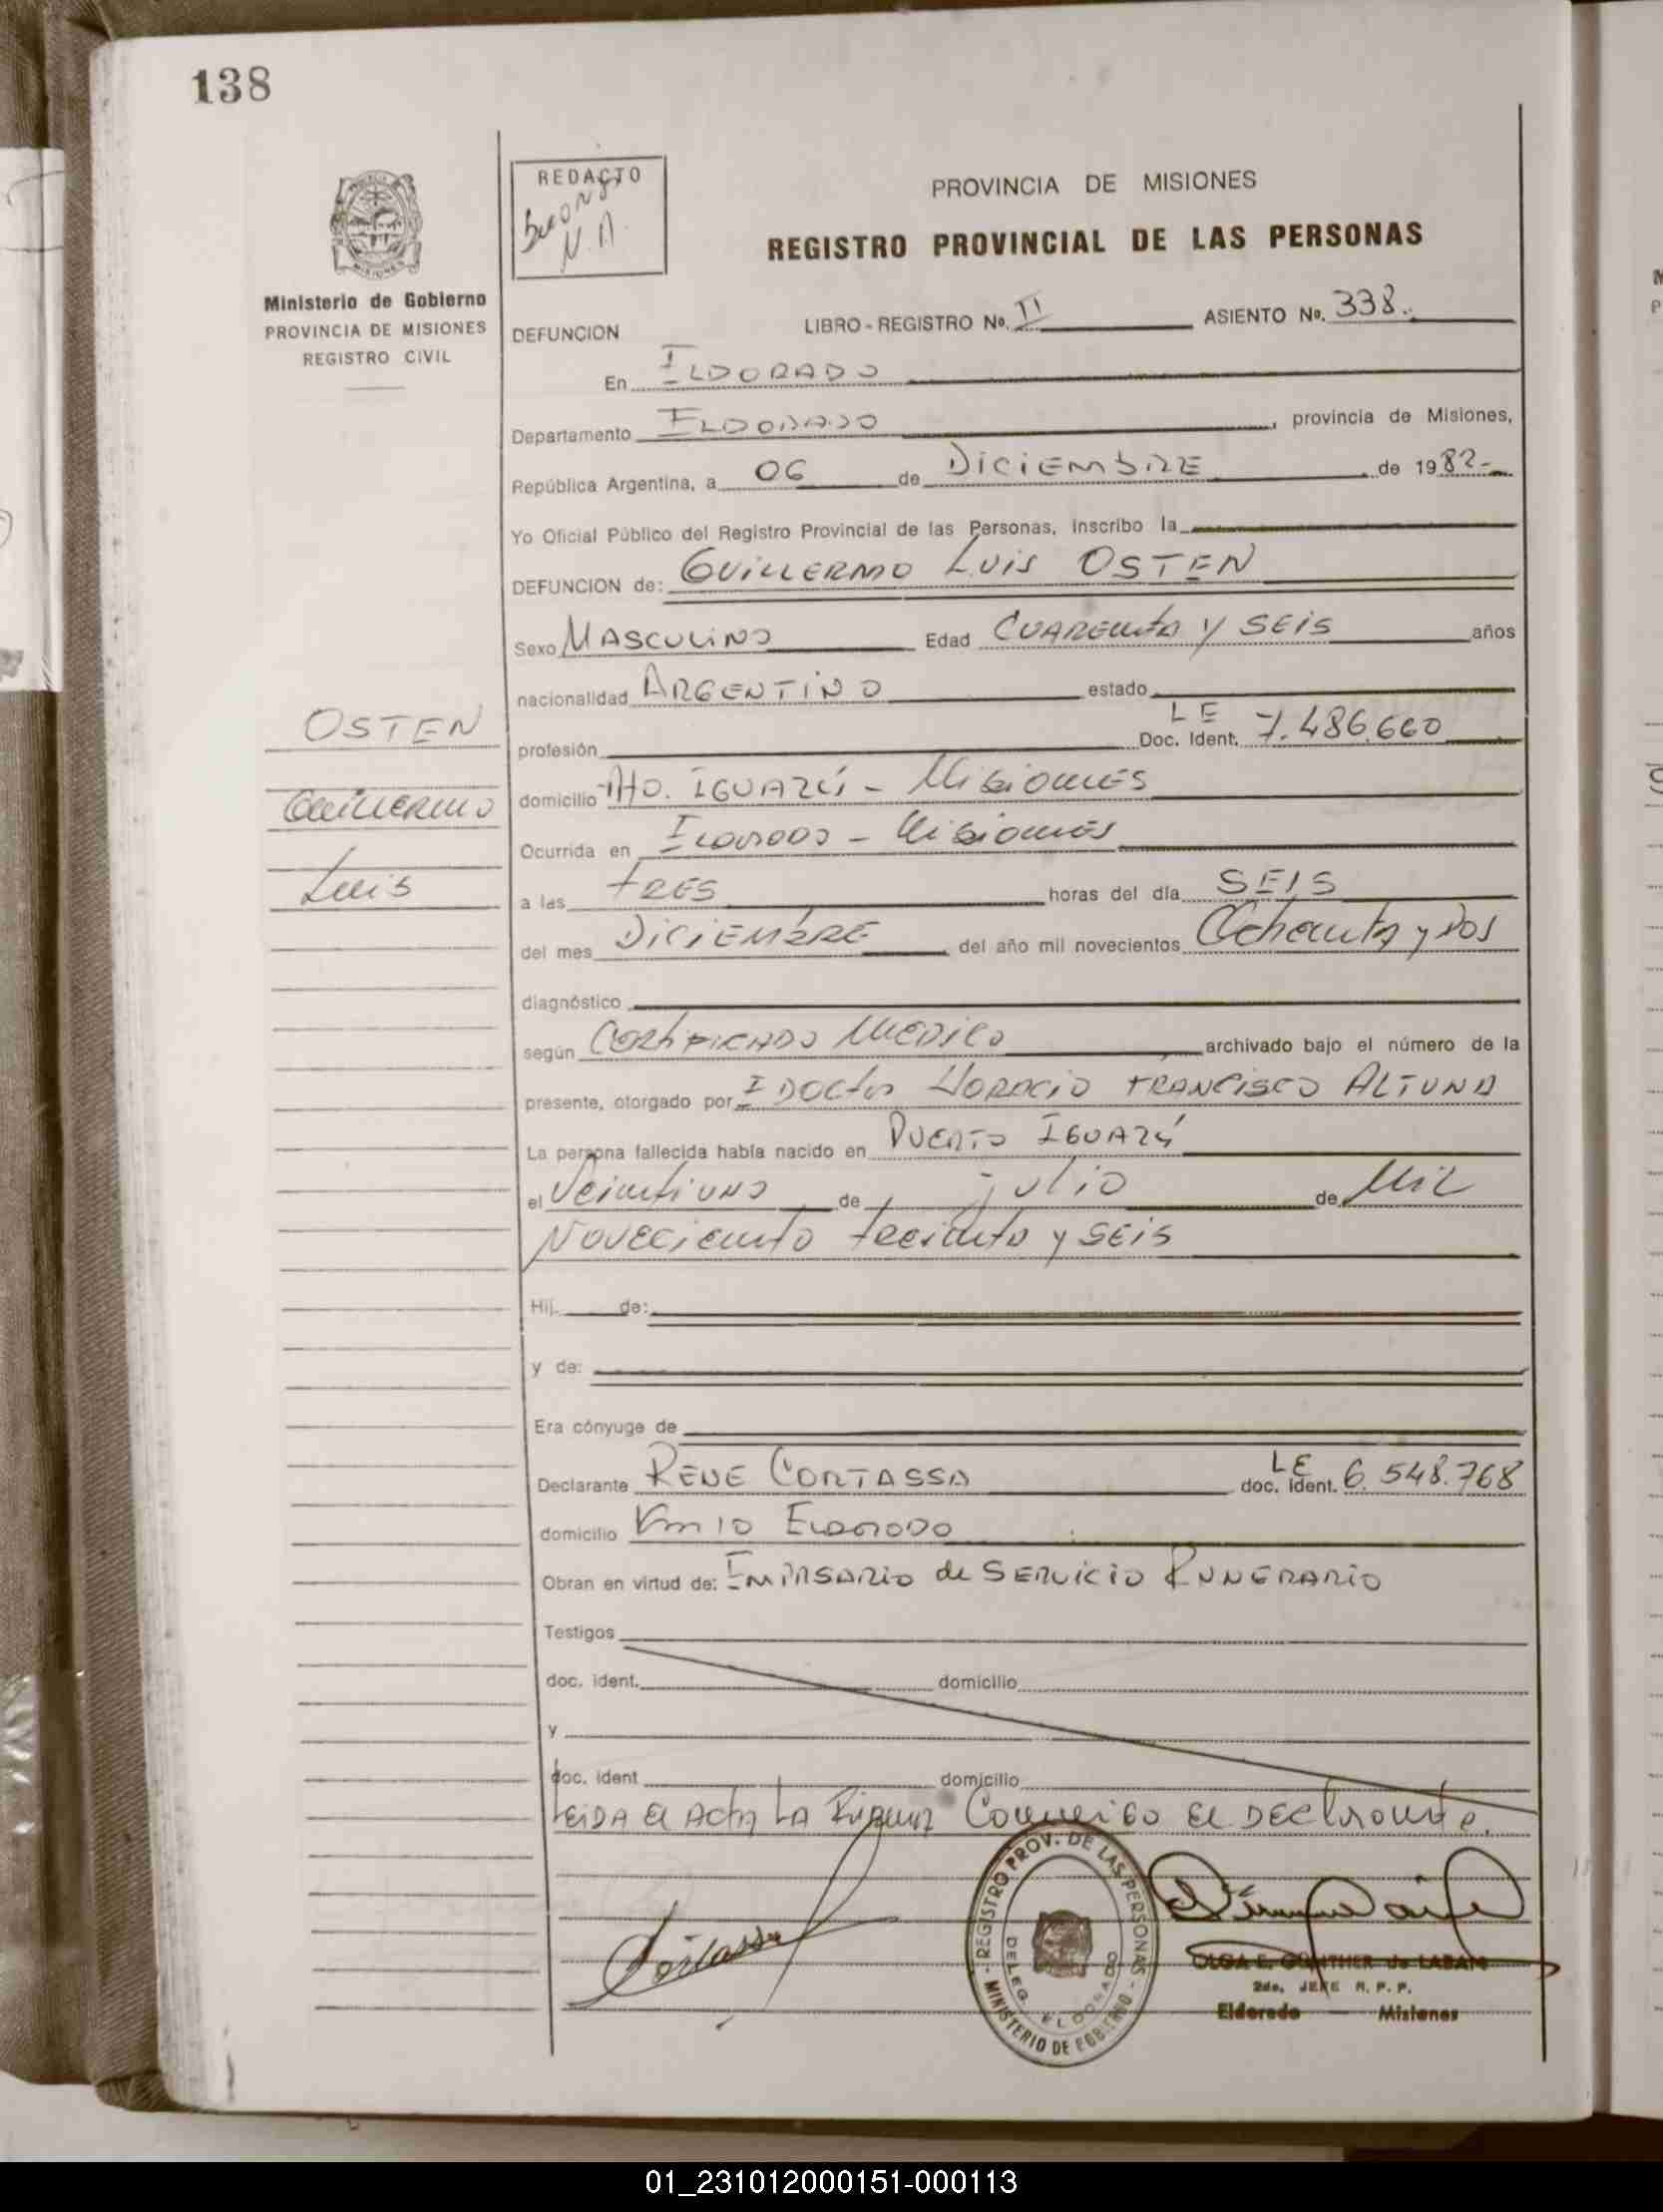 138
REDACTO
N.A.
PROVINCIA DE MISIONES
REGISTRO PROVINCIAL DE LAS PERSONAS
Ministerio de Gobierno
PROVINCIA DE MISIONES
REGISTRO CIVIL
DEFUNCION LIBRO - REGISTRO No. II ASIENTO No. 338.
En ELDORADO
Departamento ELDORADO, provincia de Misiones,
República Argentina, a 06 de DICIEMBRE de 1982-
Yo Oficial Público del Registro Provincial de las Personas, inscribo la
DEFUNCION de: GUILLERMO LUIS OSTEN
Sexo MASCULINO Edad CUARENTA Y SEIS años
nacionalidad ARGENTINO estado
OSTEN
GUILLERMO
LUIS
profesión Doc. Ident. LE 7.486.660
domicilio PTO. IGUAZÚ - MISIONES
Ocurrida en ELDORADO - MISIONES
a las TRES horas del día SEIS
del mes DICIEMBRE del año mil novecientos Ochenta y DOS
diagnóstico
según CERTIFICADO MEDICO archivado bajo el número de la
presente, otorgado por El DOCTOR HORACIO FRANCISCO ALTUNA
La persona fallecida había nacido en PUERTO IGUAZÚ
el Veintiuno de julio de MIL
NOVECIENTO treinta y SEIS
Hij de:
y de:
Era cónyuge de
Declarante RENE CORTASSA doc. ident. LE 6.548.768
domicilio Km 10 ELDORADO
Obran en virtud de: EMPRSARIO de SERVICIO FUNERARIO
Testigos
doc. ident. domicilio
y
doc. ident domicilio
LEIDA El ACTA LA FIRMAN CONMIGO EL DECLARANTE.
Cortassa
REGISTRO PROV. DE LAS PERSONAS - MINISTERIO DE GOBIERNO -
DELEG. ELDORADO
OLGA E. GUNTHER de LABAN
2do. JEFE R. P. P.
Eldorado — Misiones
01_231012000151-000113